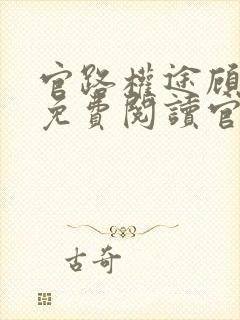 官路權途顧
免費閱讀官
古奇